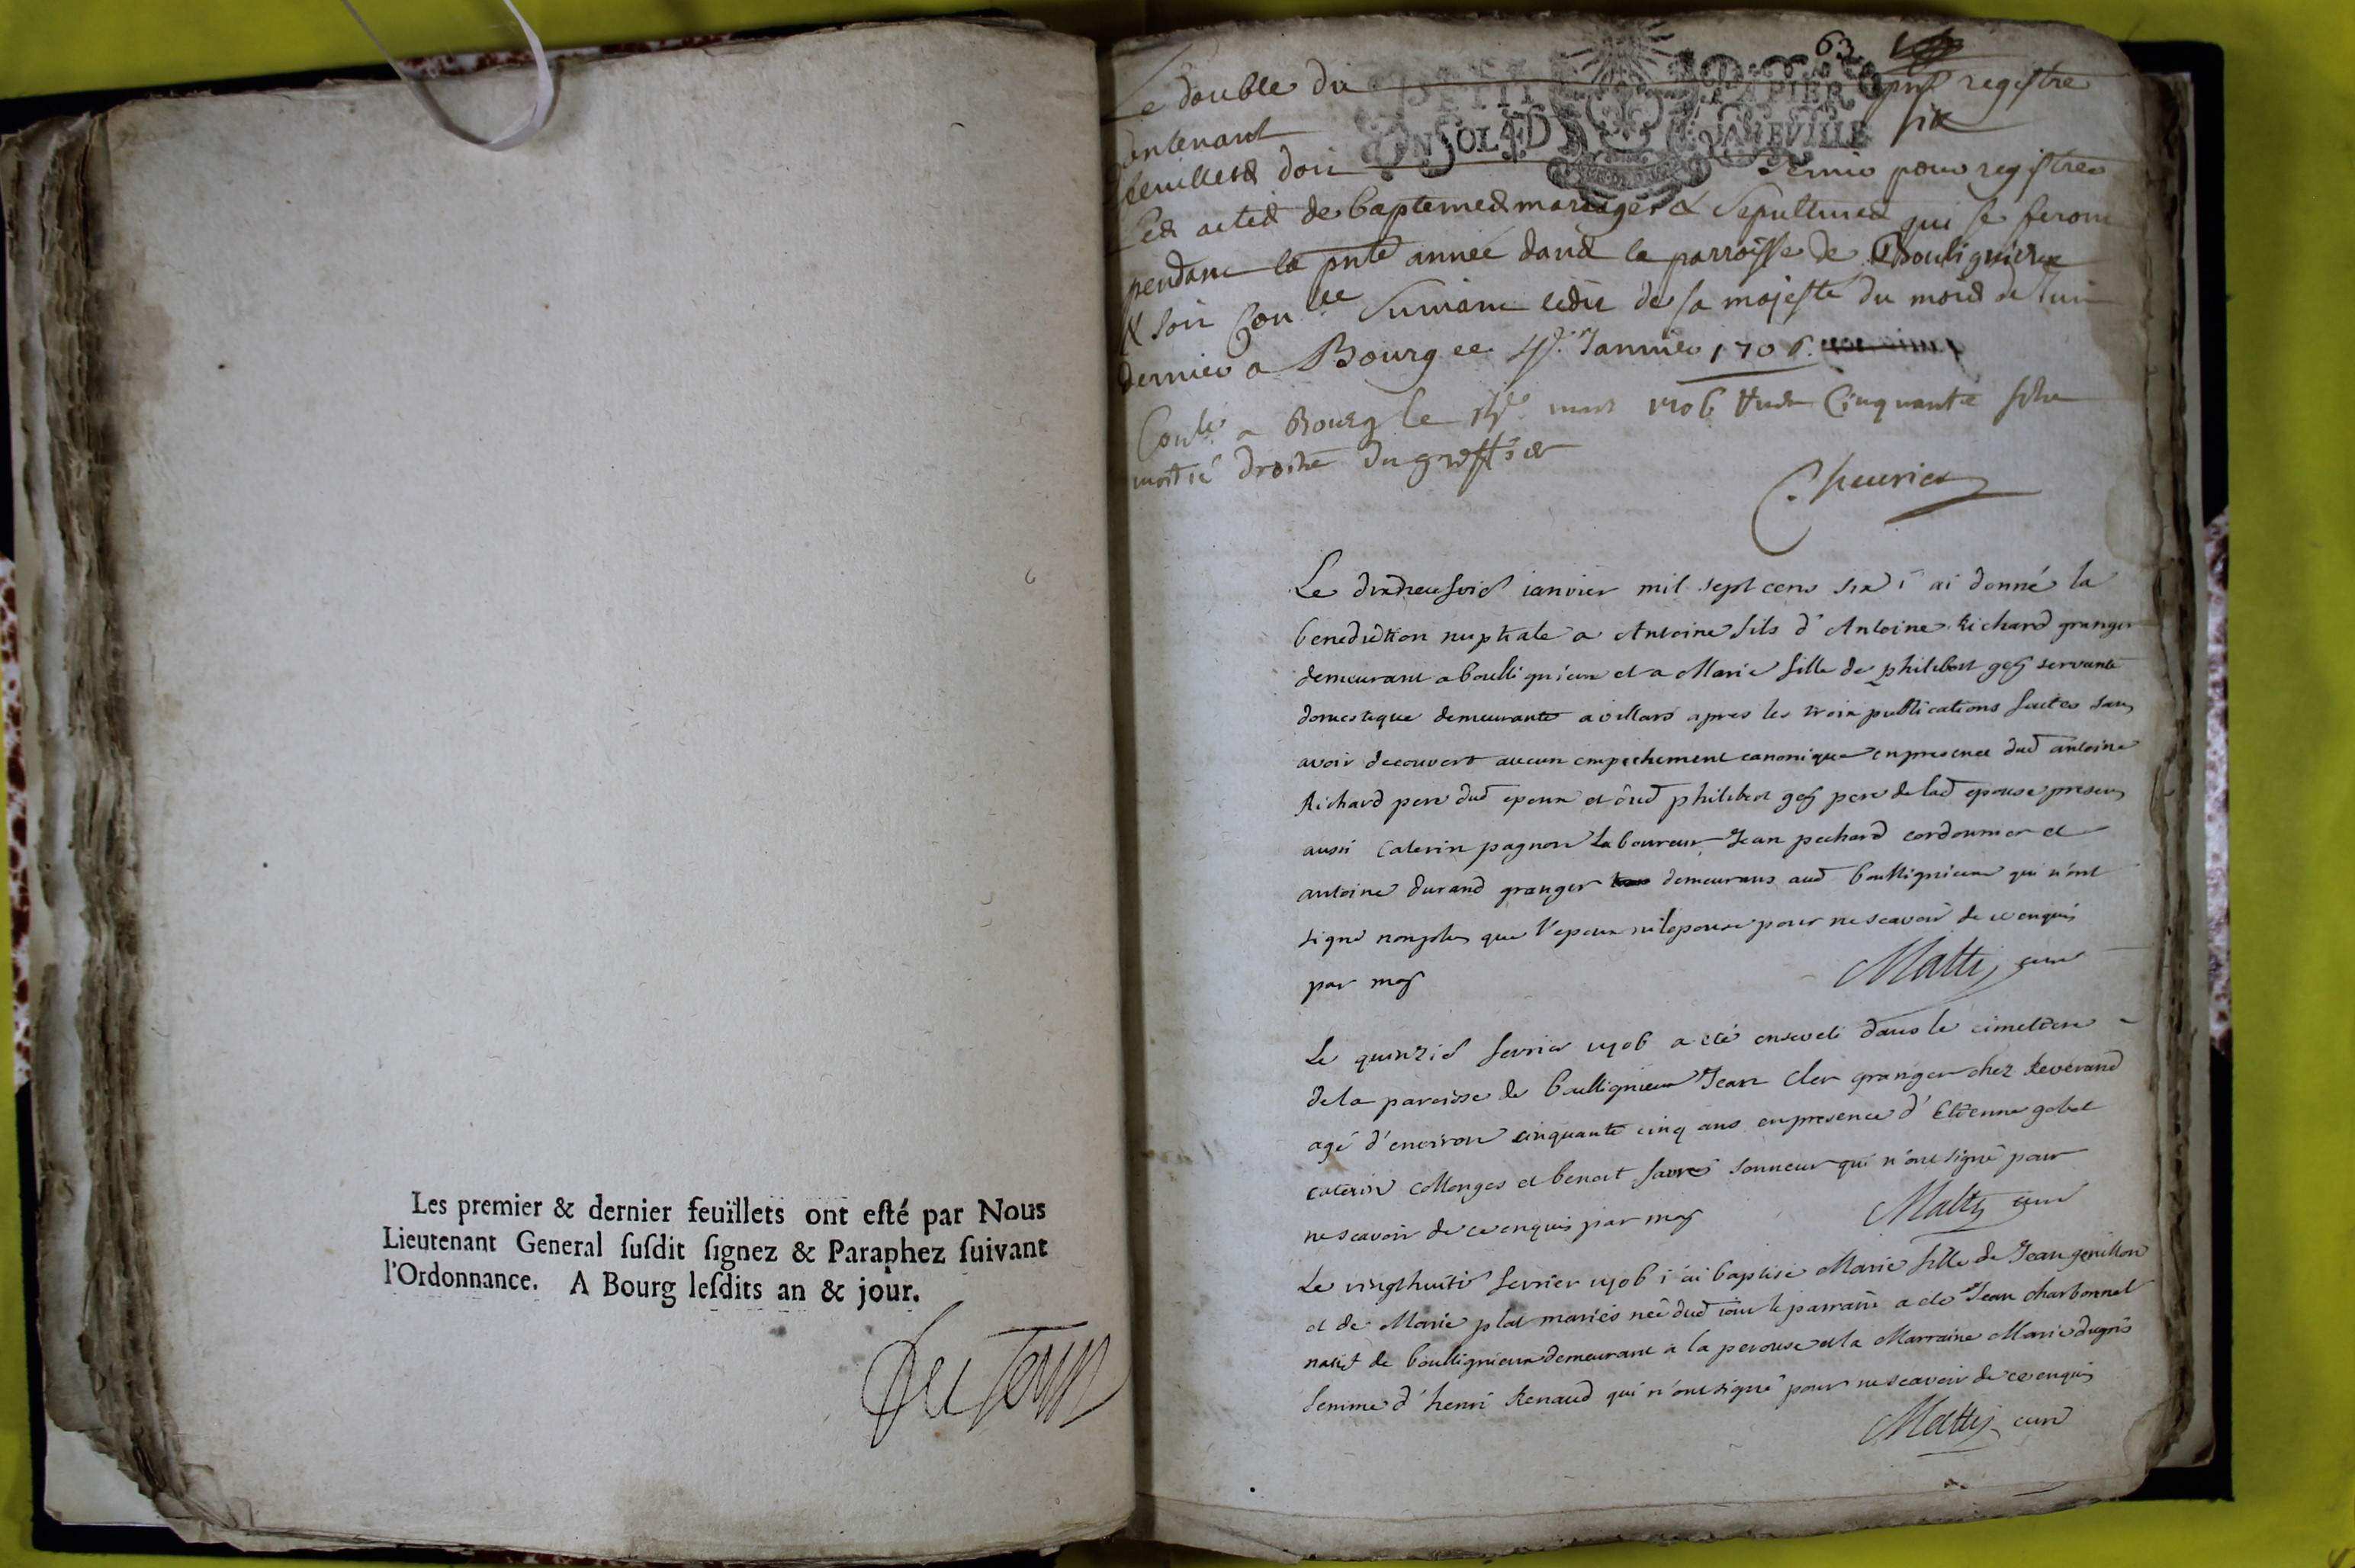 Les premier & dernier feuïllets ont eſté par Nous
Lieutenant General ſuſdit ſignez & Paraphez ſuivant
l'Ordonnance. A Bourg leſdits an & jour.
63
Le double du pnt registre
contenant six
feuillets doit servir pour registrer
les actes de baptemes mariages & sepultures qui se feront
pendant la pnte année dans la parroisse de Bouligneux
& soit suivant ledit de sa majesté du mois de Juin
dernier a Bourg ce Janvier 1706.
a Bourg le mars 1706 Cinquante
moitié droits du greffier
PETIT PAPIER
UN SOL 4 D LA FEVILLE
Le dixneufvie janvier mil sept cens six j'ai donné la
benediction nuptiale a Antoine fils d'Antoine Richard granger
demeurant a boullignieux et a Marie fille de philibert gey servante
domestique demeurante a villars apres les trois publications faites sans
avoir decouvert aucun empechement canonique en presence dud antoine
Richard pere dud epoux et dud philibert gey pere de lad epouse presens
aussi Caterin pagnon laboureur Jean pechard cordonnier et
antoine durand granger demeurans aud boullignieux qui n'ont
signé non plus que l'epoux ni l'epouse pour ne scavoir de ce enquis
par moy Matty curé
Le quinzie fevrier 1706 a eté enseveli dans le cimetiere
de la paroisse de boullignieux Jean Cler granger chez Reverand
agé d'environ cinquante cinq ans en presence d'Etienne gobet
caterin Collonges et benoit favre sonneur qui n'ont signé pour
ne scavoir de ce enquis par moy Matty curé
Le vingthuitie fevrier 1706 j'ai baptisé Marie fille de Jean genillon
et de Marie plat mariés née dud jour le parrain a eté Jean charbonnet
natif de boullignieux demeurant a la perouse et la Marraine Marie
femme d'henri Renaud qui n'ont signé pour ne scavoir de ce enquis
Matty curé